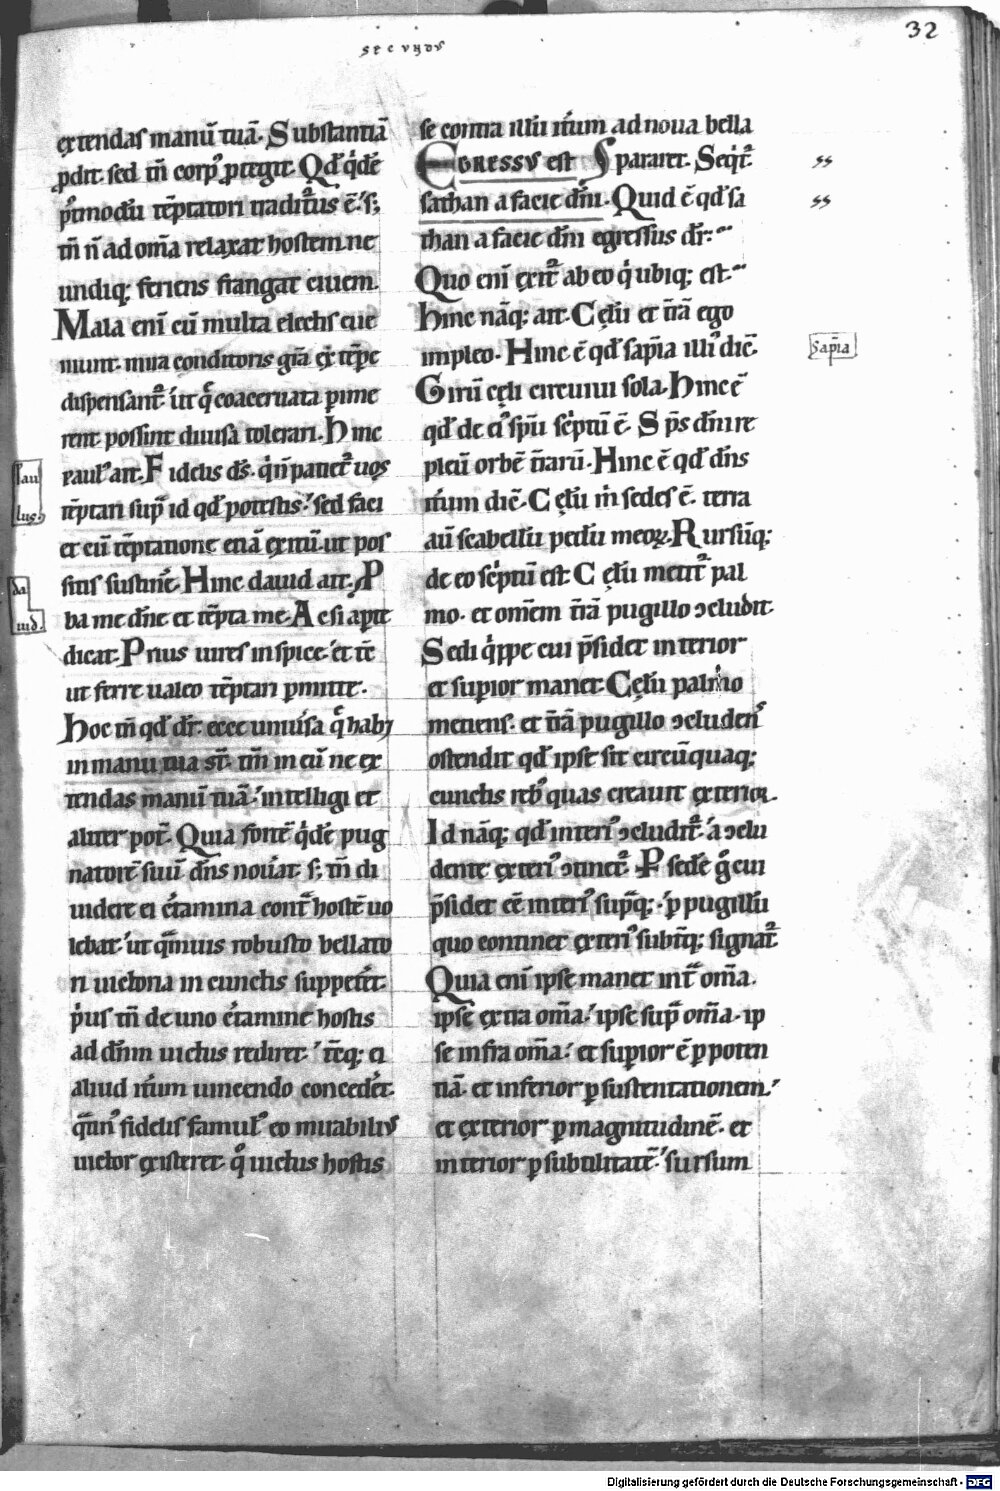 SECUNDUS
32
extendas manū tuā. Substantiā
ꝓdit. sed tm̄ corpꝰ ꝓtegit. Qd' q̇dē
ptmodū tēptatori traditurus ē. s;
tm̄ n̄ ad om̄a relaxat hostem. ne
undiq; feriens frangat ciuem.
Mala eni cū multa electis eue
niunt. mira conditoris gr̄a ex tēpe
dispensant᷑. ut q̄ coaceruata pime
rent. possint diuisa tolerari. Hinc
paulꝰ ait. Fidelis ds̄. q̇ n̄ patiet᷑ uos
tēptari sup̄ id qd' potestis. sed faci
et cū tēptatione etiā ꝓuentū. ut pos
sitis sustinē. Hinc dauid ait. P
ba me dn̄e et tēpta me. Ac si apte
dicat. Prius uires inspice. et tc̄
ut ferre ualeo tēptari pmitte.
Hoc tm̄ qd' dr̄. ecce uniuīsa q̄ habꝫ
in manu tua st̄. tm̄ in eū ne ex
tendas manū tuā. intelligi et
aliter pot̄. Quia fortē q̇dē pug
natorē suū dn̄s nouat. s; tm̄ di
uidere ei c̄tamina cont̄ hostē uo
lebat. ut qm̄uis robusto bellato
ri uictoria in cunctis suppetet.
p̓us tm̄ de uno c̄tamine hostis
ad dn̄m uictus rediret. tc̄q; ei
aliud it̓um uincendo concedet.
q̄tin' fidelis famulꝰ eo mirabiliꝰ
uictor existeret. q̊ uictus hostis
Pau
lus.
da
uid.
se contra illū it̓um ad noua bella
EGRESSVS est S pararet. Seqt᷑.
sathan a facie dn̄i. Quid ē qd' sa
than a facie dn̄i egressus dr̄.
Quo eni exit᷑ ab eo q̇ ubiq; est.
Hinc nāq; ait. Cęlū et tr̄ā ego
impleo. Hinc ē qd' sapn̄a illiꝰ dic̄.
Girū cęli circuiui sola. Hinc ē
qd' de eiꝰ spū sc̓ptū ē. Sps̄ dn̄i re
pleū orbē tr̄arū. Hinc ē qd' dn̄s
it̓um dic̄. Cęlū m̓ sedes ē. terra
aū scabellū pedū meoꝝ. Rursūq;
de eo sc̓ptū est. Cęlū metit᷑ pal
mo. et om̄em tr̄ā pugillo ɔcludit.
Sedi q̇ppe cui p̄sidet interior
et supior manet. Cęlū palmo
metiens. et tr̄ā pugillo ɔcludens
ostendit qd' ipse sit circūquaq;
cunctis rebꝰ quas creauit exterior.
Id nāq; qd' interiꝰ ɔcludit᷑. a ɔclu
dente exteriꝰ ɔtinet᷑. P sedē g̊ cui
p̄sidet ee interiꝰ sup̄q;. p pugillū
quo continet exteriꝰ subtq; signat᷑.
Quia eni ipse manet int̄ om̄a.
ipse extra om̄a. ipse sup̄ om̄a. ip
se infra om̄a. et supior ē ꝑ poten
tiā. et inferior ꝑ sustentationem.
et exterior ꝑ magnitudinē. et
interior ꝑ subtilitatē. sursum
ss
ss
Sapn̄a
Digitalisierung gefördert durch die Deutsche Forschungsgemeinschaft - DFG